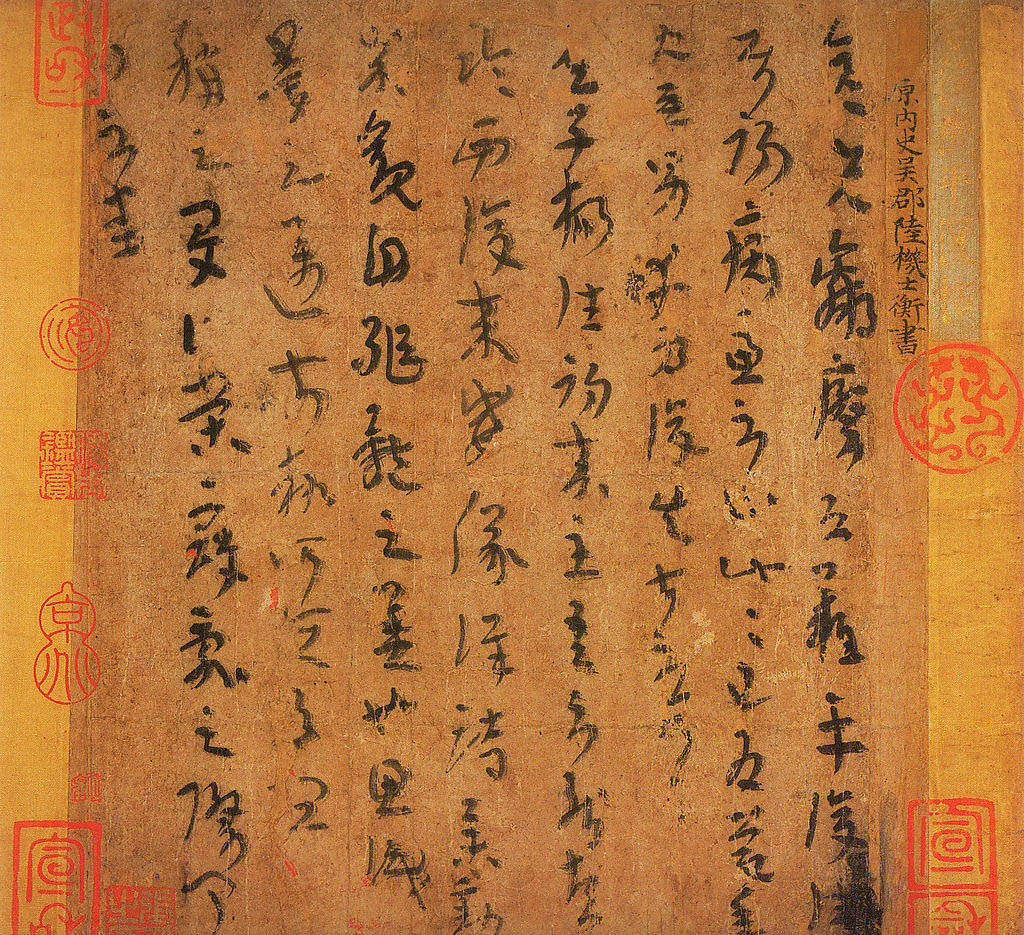 原内史吳郡陸機士衡書
彥先羸瘵恐難平復往
屬初病慮不止此此已為慶承
使唯男幸為復失前憂耳
吳子楊往初來主吾不能盡
臨西復來威儀詳跱舉動
成觀自軀體之美也思識
量之邁前執所恒有宜
稱之夏伯榮寇亂之際聞
問不悉